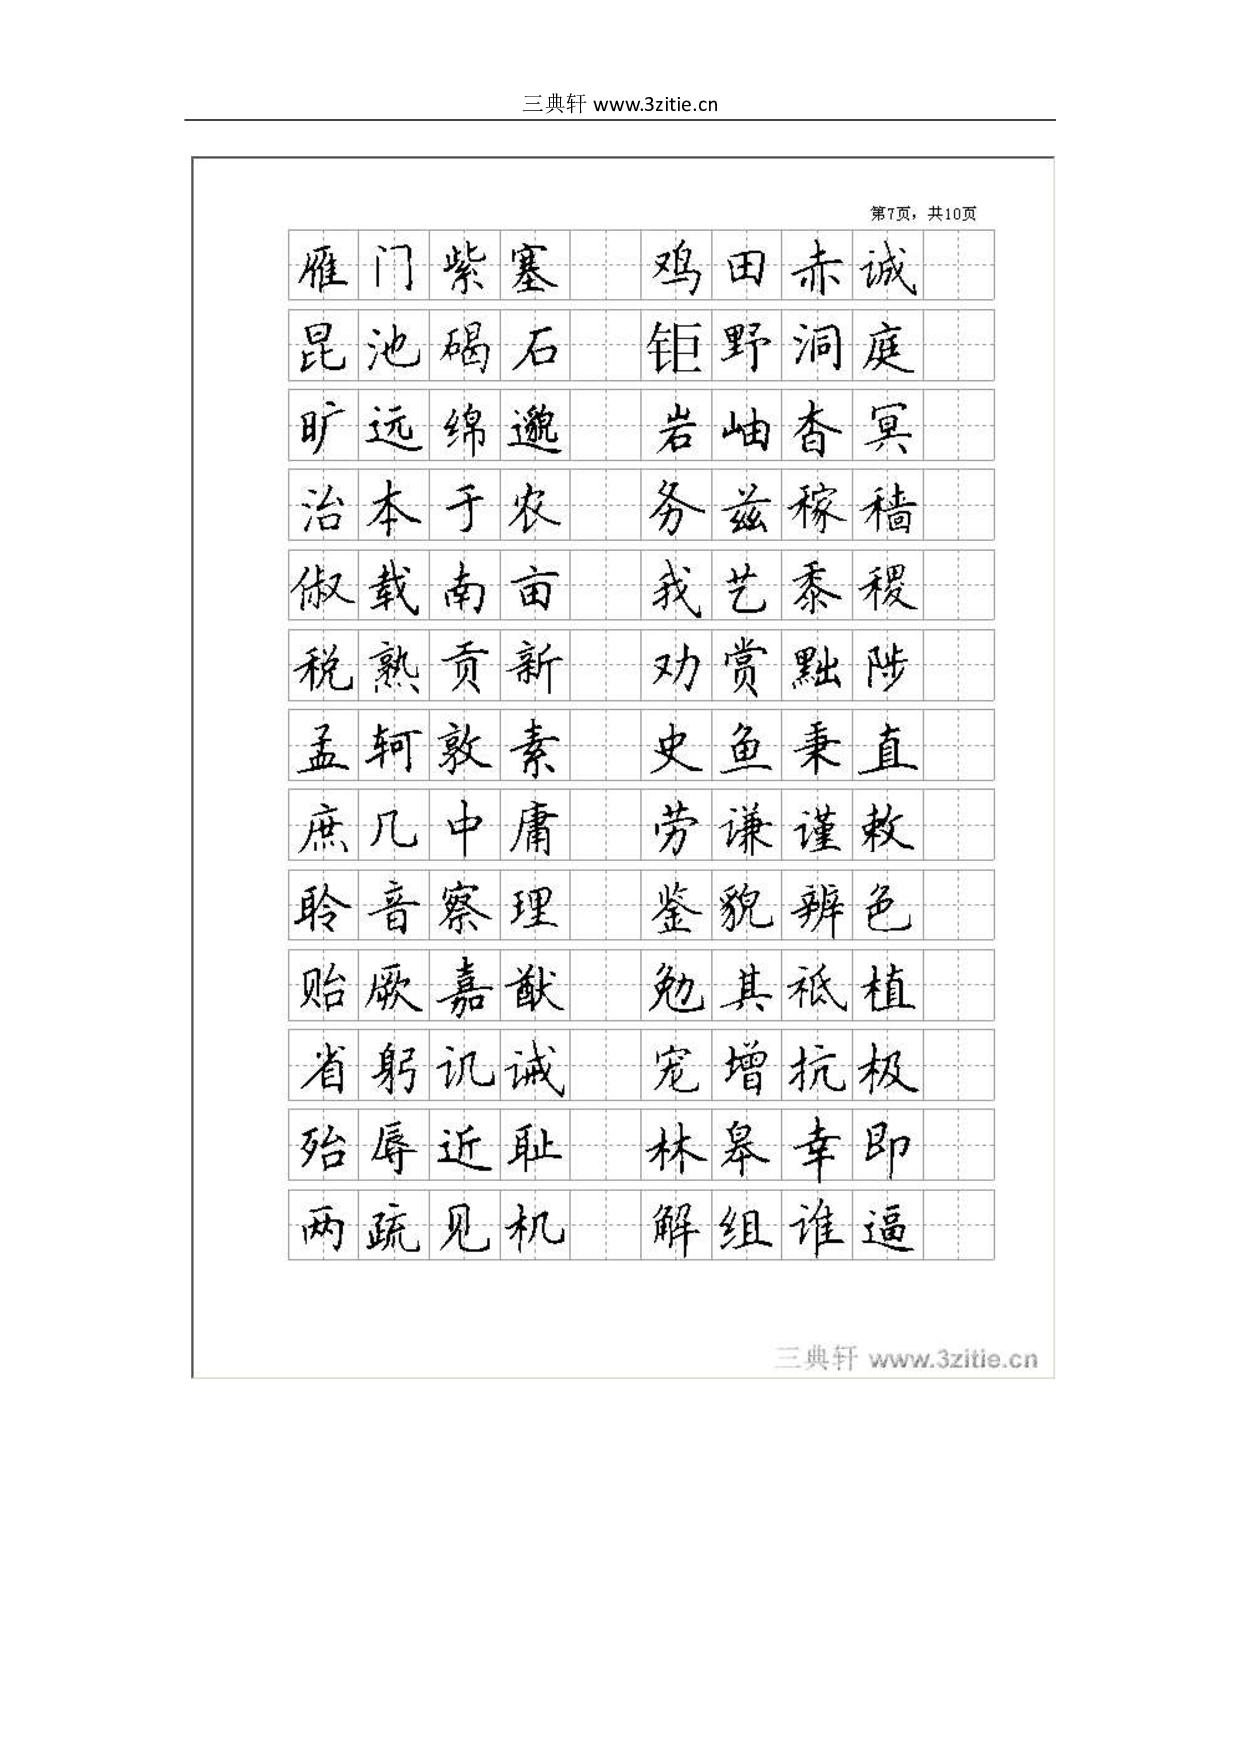 三典轩 www.3zitie.cn
第7页，共10页
雁门紫塞 鸡田赤诚
昆池碣石 钜野洞庭
旷远绵邈 岩岫杳冥
治本于农 务兹稼穑
俶载南亩 我艺黍稷
税熟贡新 劝赏黜陟
孟轲敦素 史鱼秉直
庶几中庸 劳谦谨敕
聆音察理 鉴貌辨色
贻厥嘉猷 勉其祗植
省躬讥诫 宠增抗极
殆辱近耻 林皋幸即
两疏见机 解组谁逼
三典轩 www.3zitie.cn